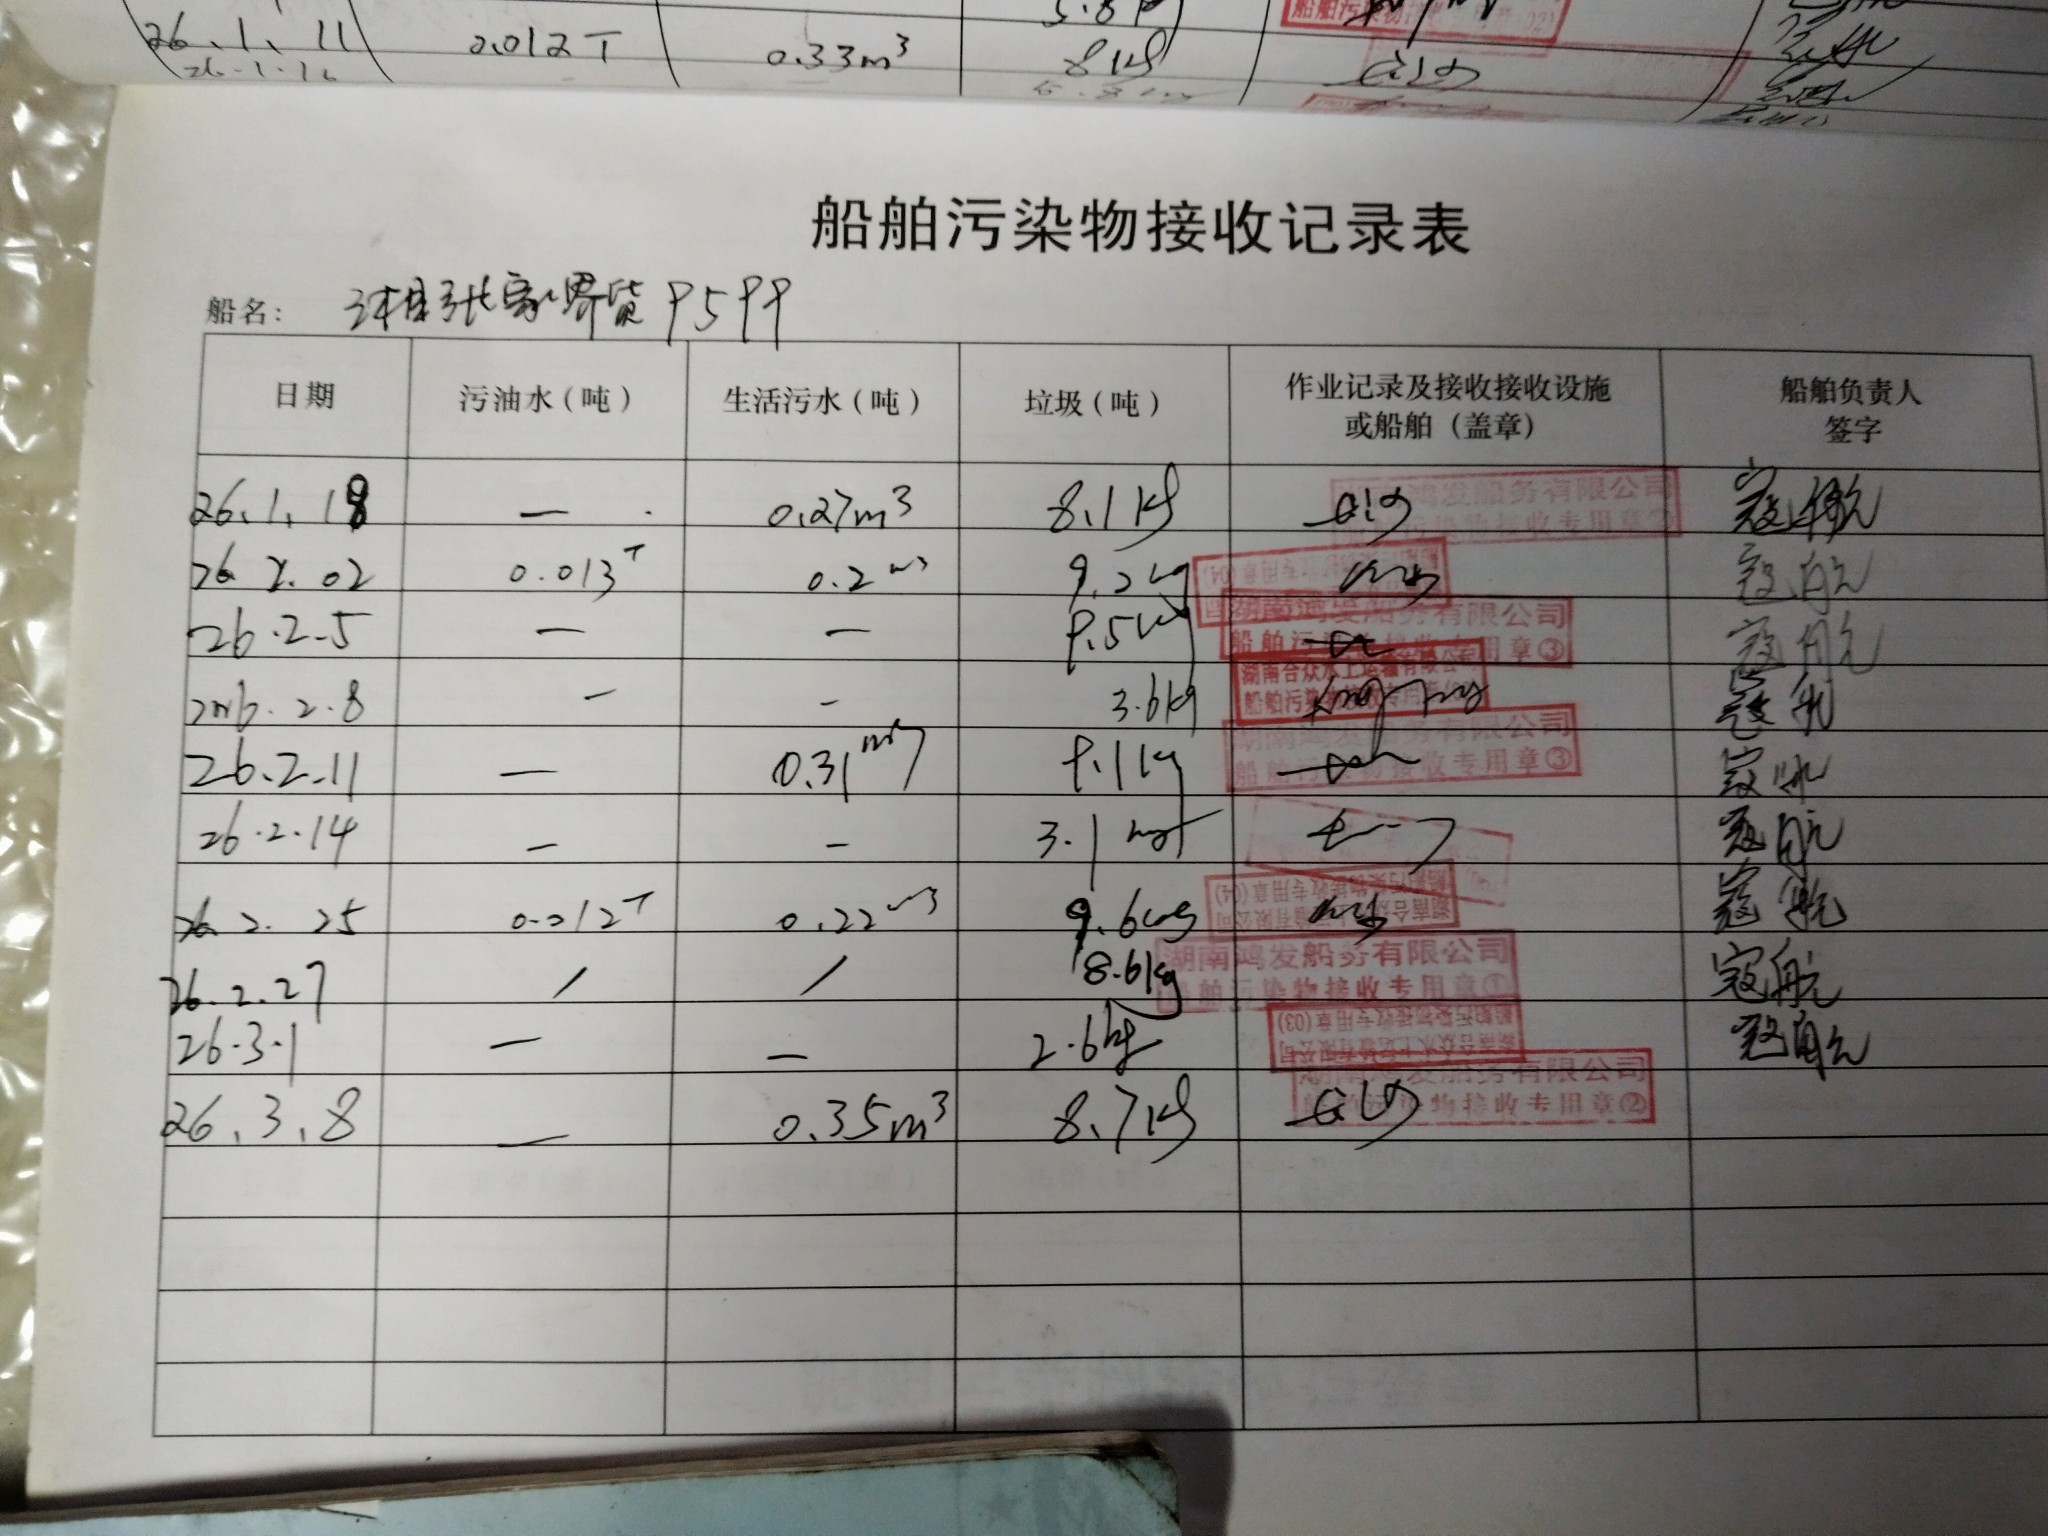 26.1.11 0.012T 0.33m³ 8kg
船舶污染物接收记录表
船名: 湘张家界货9599
日期 污油水(吨) 生活污水(吨) 垃圾(吨) 作业记录及接收接收设施 船舶负责人
或船舶(盖章) 签字
26.1.18 — 0.27m³ 8.1kg 鸿发船务有限公司 寇航
26.2.02 0.013T 0.2m³ 9.2kg 寇航
26.2.5 — — 9.5kg 湖南鸿发船务有限公司 寇航
船舶污染物接收专用章③
26.2.8 — — 3.6kg 湖南合众水上运输有限公司 寇航
船舶污染物接收专用章
26.2.11 — 0.31m³ 9.1kg 湖南鸿发船务有限公司 寇航
船舶污染物接收专用章③
26.2.14 — — 3.1kg 寇航
26.2.25 0.012T 0.22m³ 9.6kg 湖南合众水上运输有限公司 寇航
船舶污染物接收专用章(04)
26.2.27 / / 8.6kg 湖南鸿发船务有限公司 寇航
船舶污染物接收专用章①
26.3.1 — — 2.6kg 湖南合众水上运输有限公司 寇航
船舶污染物接收专用章(03)
26.3.8 — 0.35m³ 8.7kg 湖南鸿发船务有限公司
船舶污染物接收专用章②